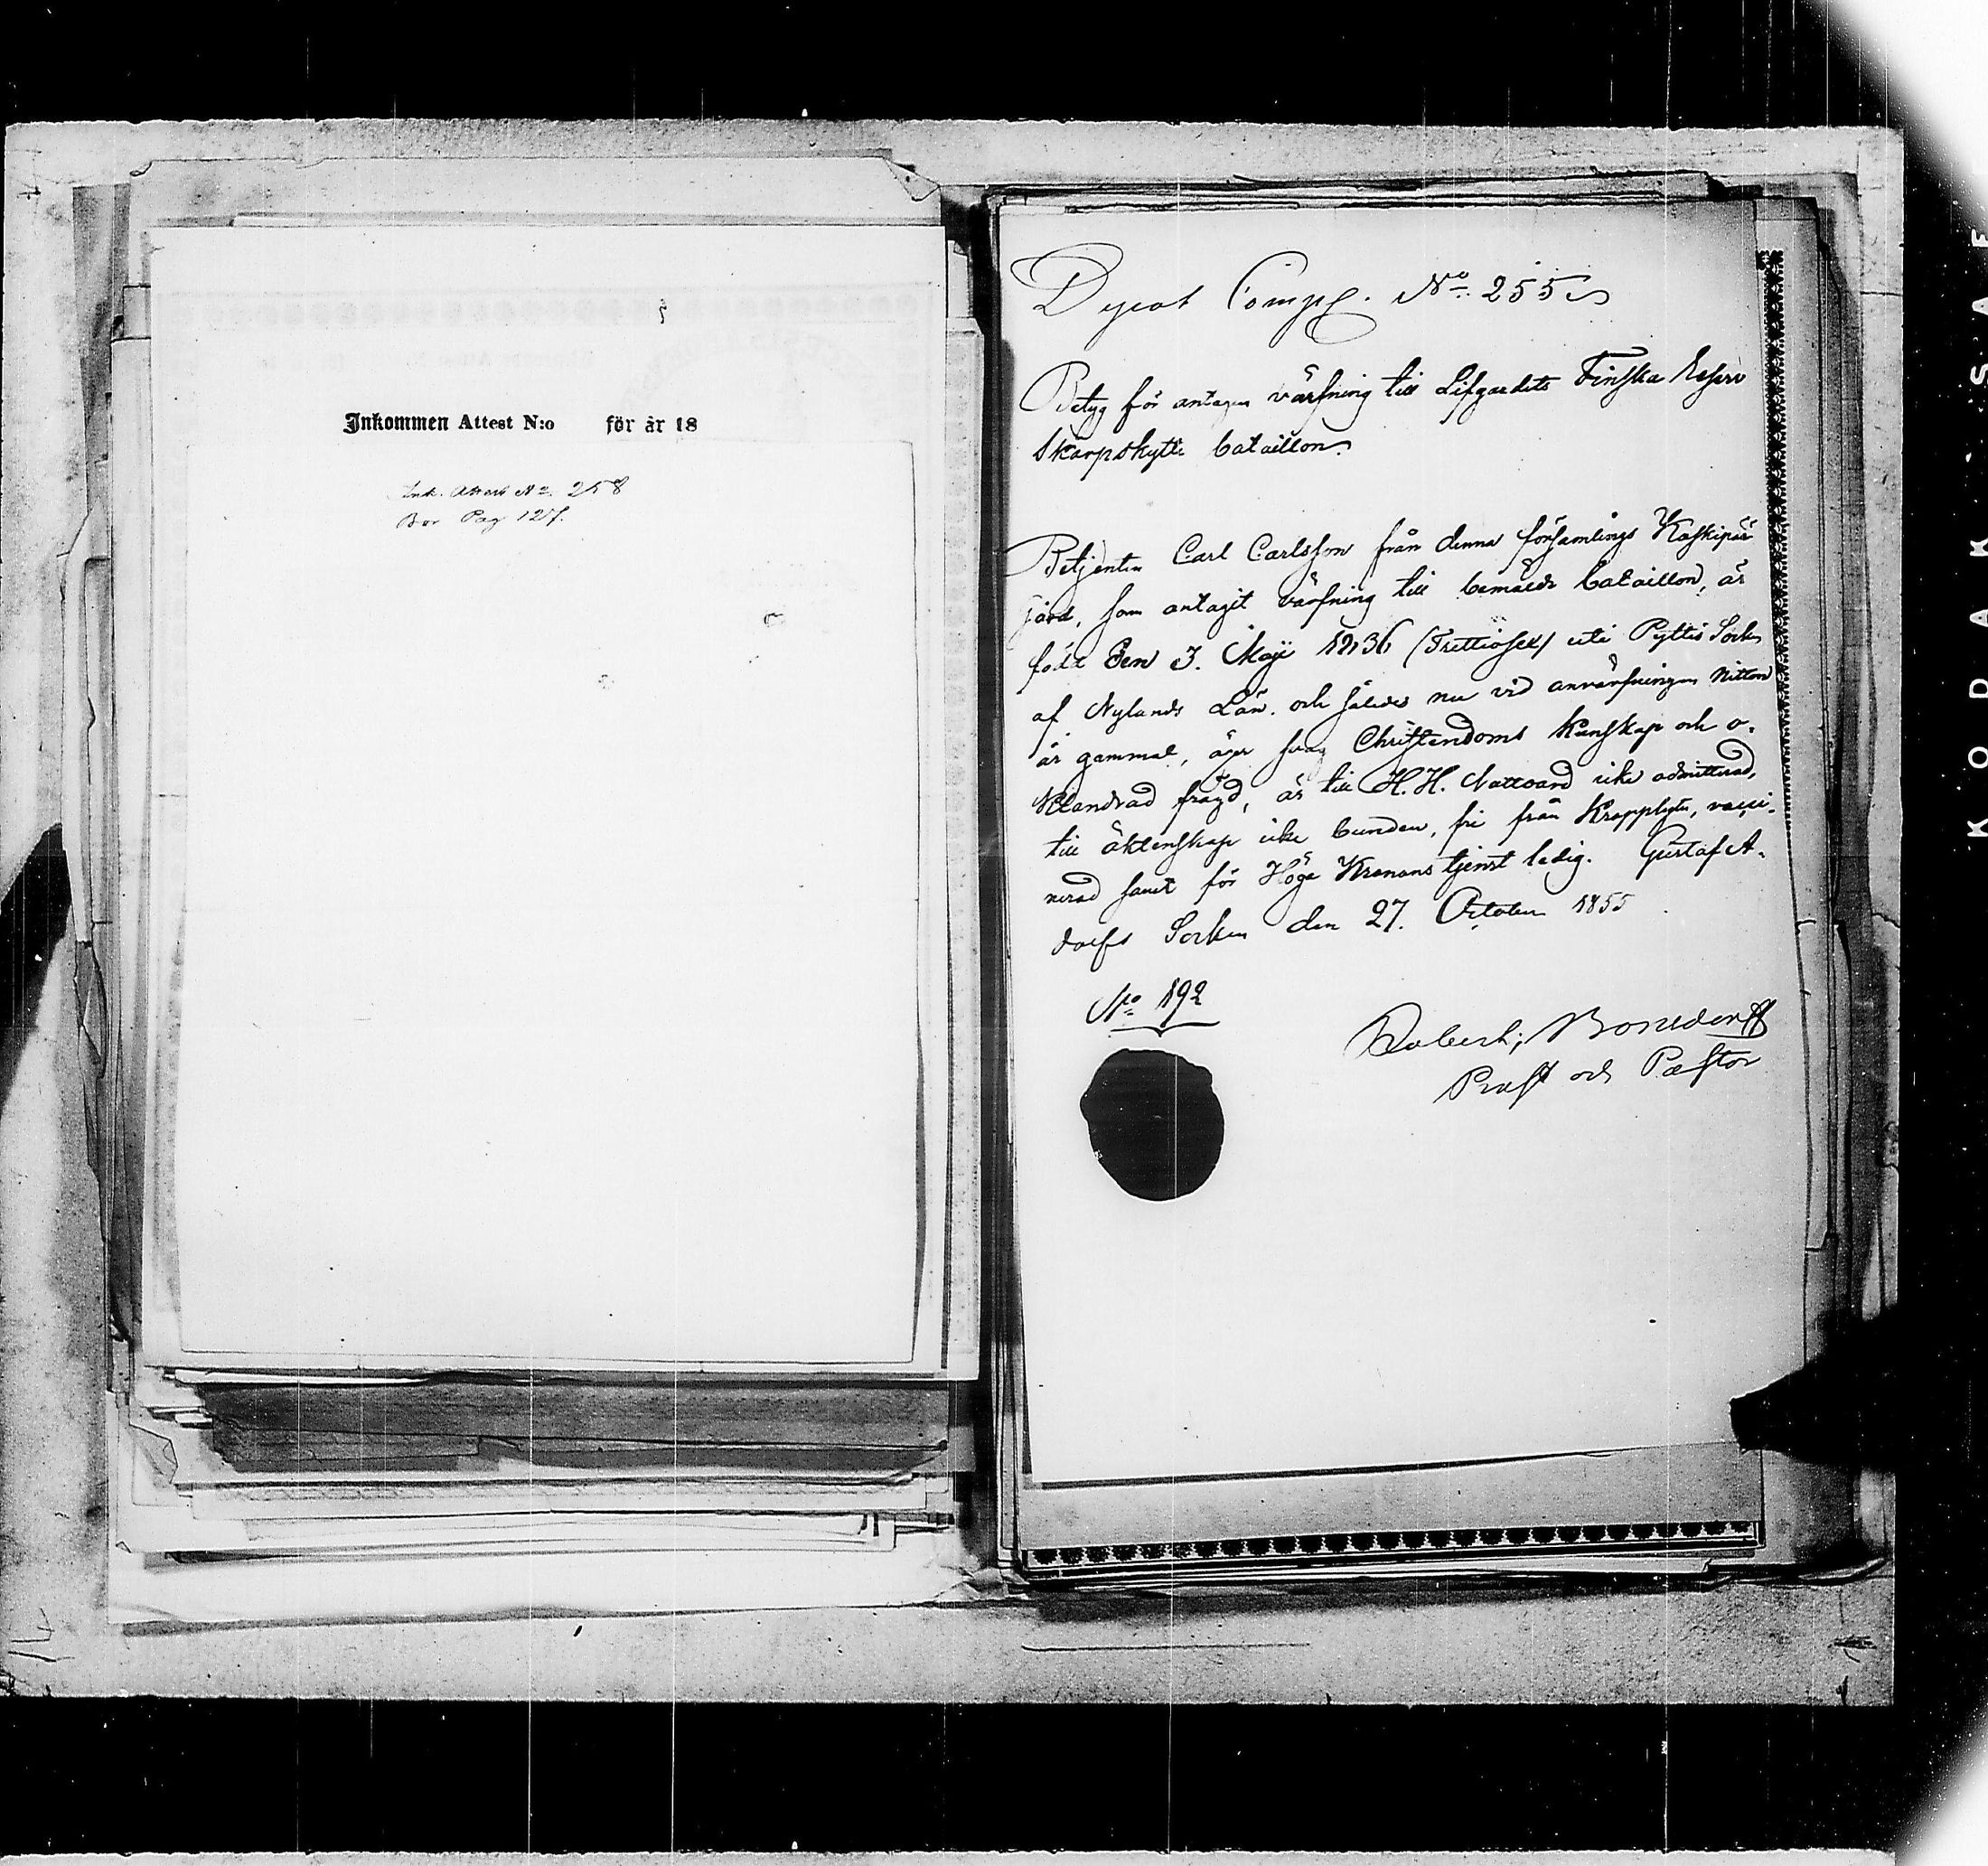 Inkommen Attest N:o för år 18
Ink. Attest No. 258
Bor Pag 127.
Depot Comp. No. 255
Betyg för antagen värfning till Lifgardets Finska Reserv
Skarpskytte bataillon.
Betjenten Carl Carlsson från denna församlings Kaskipää
gård, som antagit värfning till bemälde bataillon, är
född Den 3. Maji 1836 (Trettiosex) uti Pyttis Sockn
af Nylands Län. och således nu vid anvärfningen nitton
år gammal, äger svag Christendoms kunskap och o-
klandrad frägd, är till H. H. Nattvard icke admitterad,
till äktenskap icke bunden, fri från Kropplyte, vacci-
nerad samt för Höga Kronans tjenst ledig. Gustaf A-
dolfs Socken den 27. October 1855
No 192
Robert; Bonsdorff
Prost och Pastor
KODAK SAF